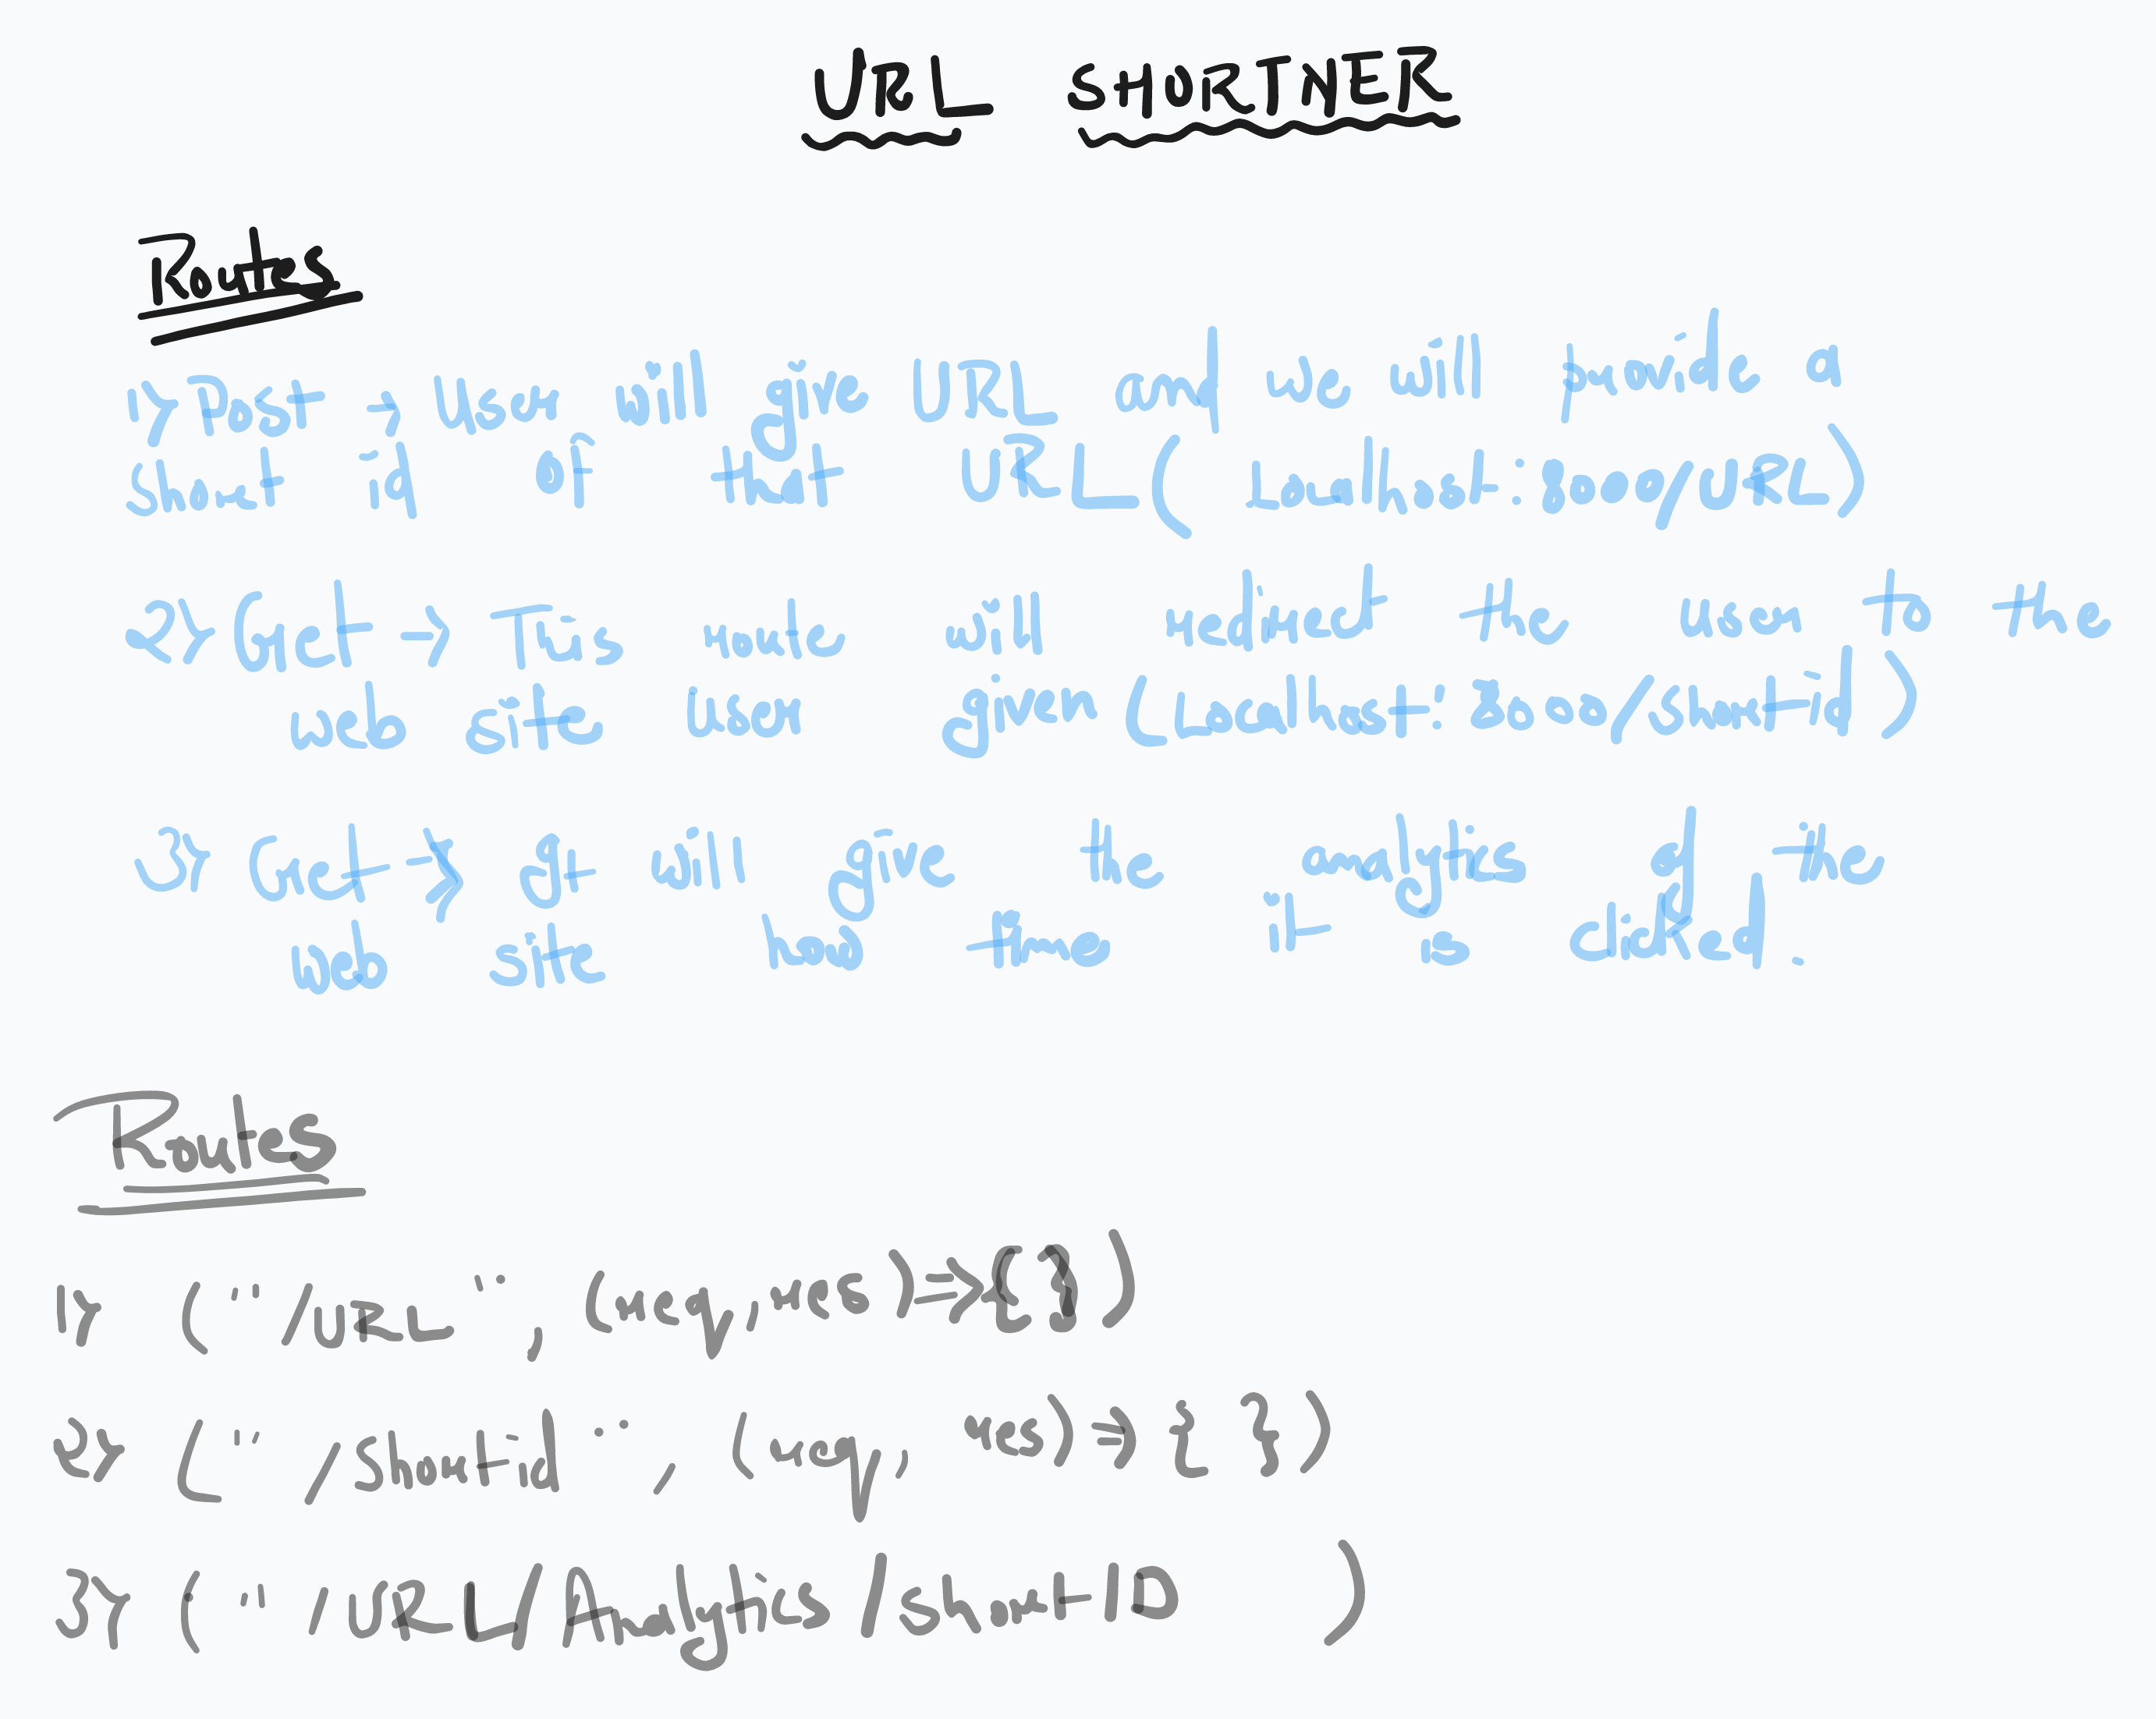 URL SHORTNER
Routes
1> Post → User will give URL and we will provide a
short id of that URL (Localhost:8000/URL)
2> Get → This route will redirect the user to the
web site user given (Localhost:8000/shortid)
3> Get → It will give the analytics of the
web site how time it is clicked.
Routes
1> ("/URL", (req, res) => { })
2> ("/shortid", (req, res) => { })
3> ("/URL/Analytics/shortID )